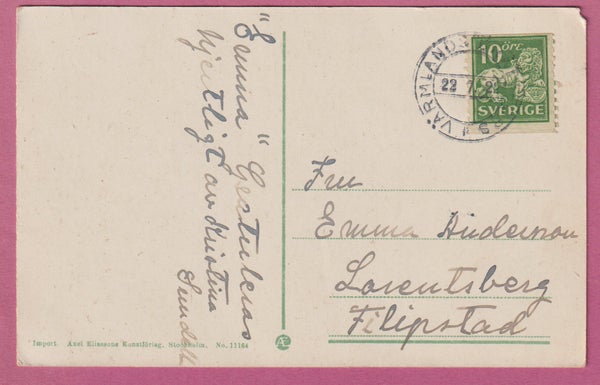 "Emma" Gratuleras
hjertligt av Kristina
Sundell
Fru
Emma Anderson
Lorentsberg
Filipstad
10 ÖRE
SVERIGE
VÄRMLANDS
22 7 2
Import. Axel Eliassons Konstförlag. Stockholm. No. 11164